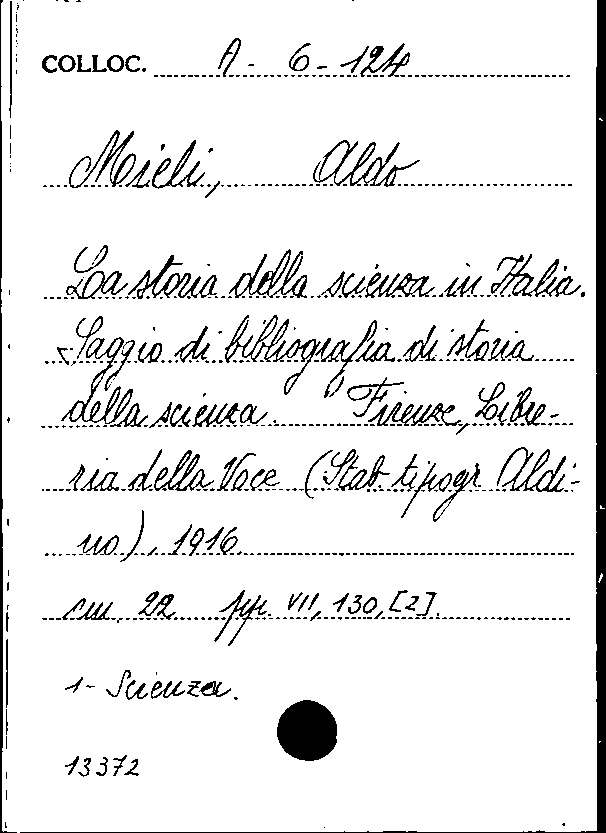 COLLOC. A - 6 - 124
Mieli, Aldo
La storia della scienza in Italia.
Saggio di bibliografia di storia
della scienza. Firenze, Libre-
ria della Voce (Stab. tipogr. Aldi-
no), 1916.
cm. 22 pp. VII, 130, [2].
1 - Scienza.
13372